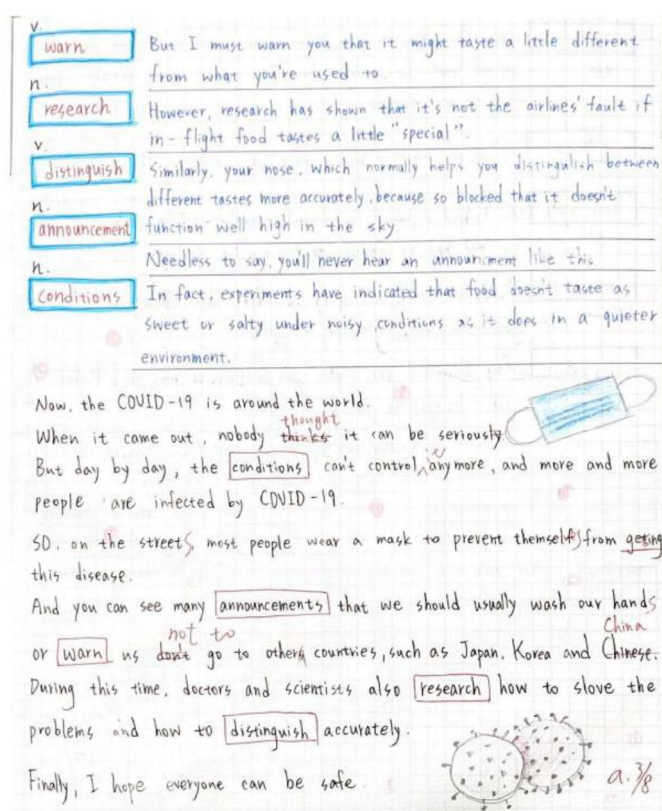 v.
warn But I must warn you that it might taste a little different
from what you're used to.
n.
research However, research has shown that it's not the airlines' fault if
in-flight food tastes a little "special".
v.
distinguish Similarly, your nose, which normally helps you distingulish between
different tastes more accurately, because so blocked that it doesn't
n.
announcement function well high in the sky.
Needless to say, you'll never hear an announiment like this
n.
conditions In fact, experiments have indicated that food doesn't taste as
sweet or salty under noisy conditions as it does in a quieter
environment.
Now, the COVID-19 is around the world.
thought
When it came out, nobody thinks it can be seriously
But day by day, the conditions can't control anymore, and more and more
people are infected by COVID-19.
SO, on the streets, most people wear a mask to prevent themselfs from geting
this disease.
And you can see many announcements that we should usually wash our hands
not to China
or warn us don't go to others countries, such as Japan, Korea and Chinese.
During this time, doctors and scientists also research how to slove the
problems and how to distinguish accurately.
Finally, I hope everyone can be safe.
a. 3/8